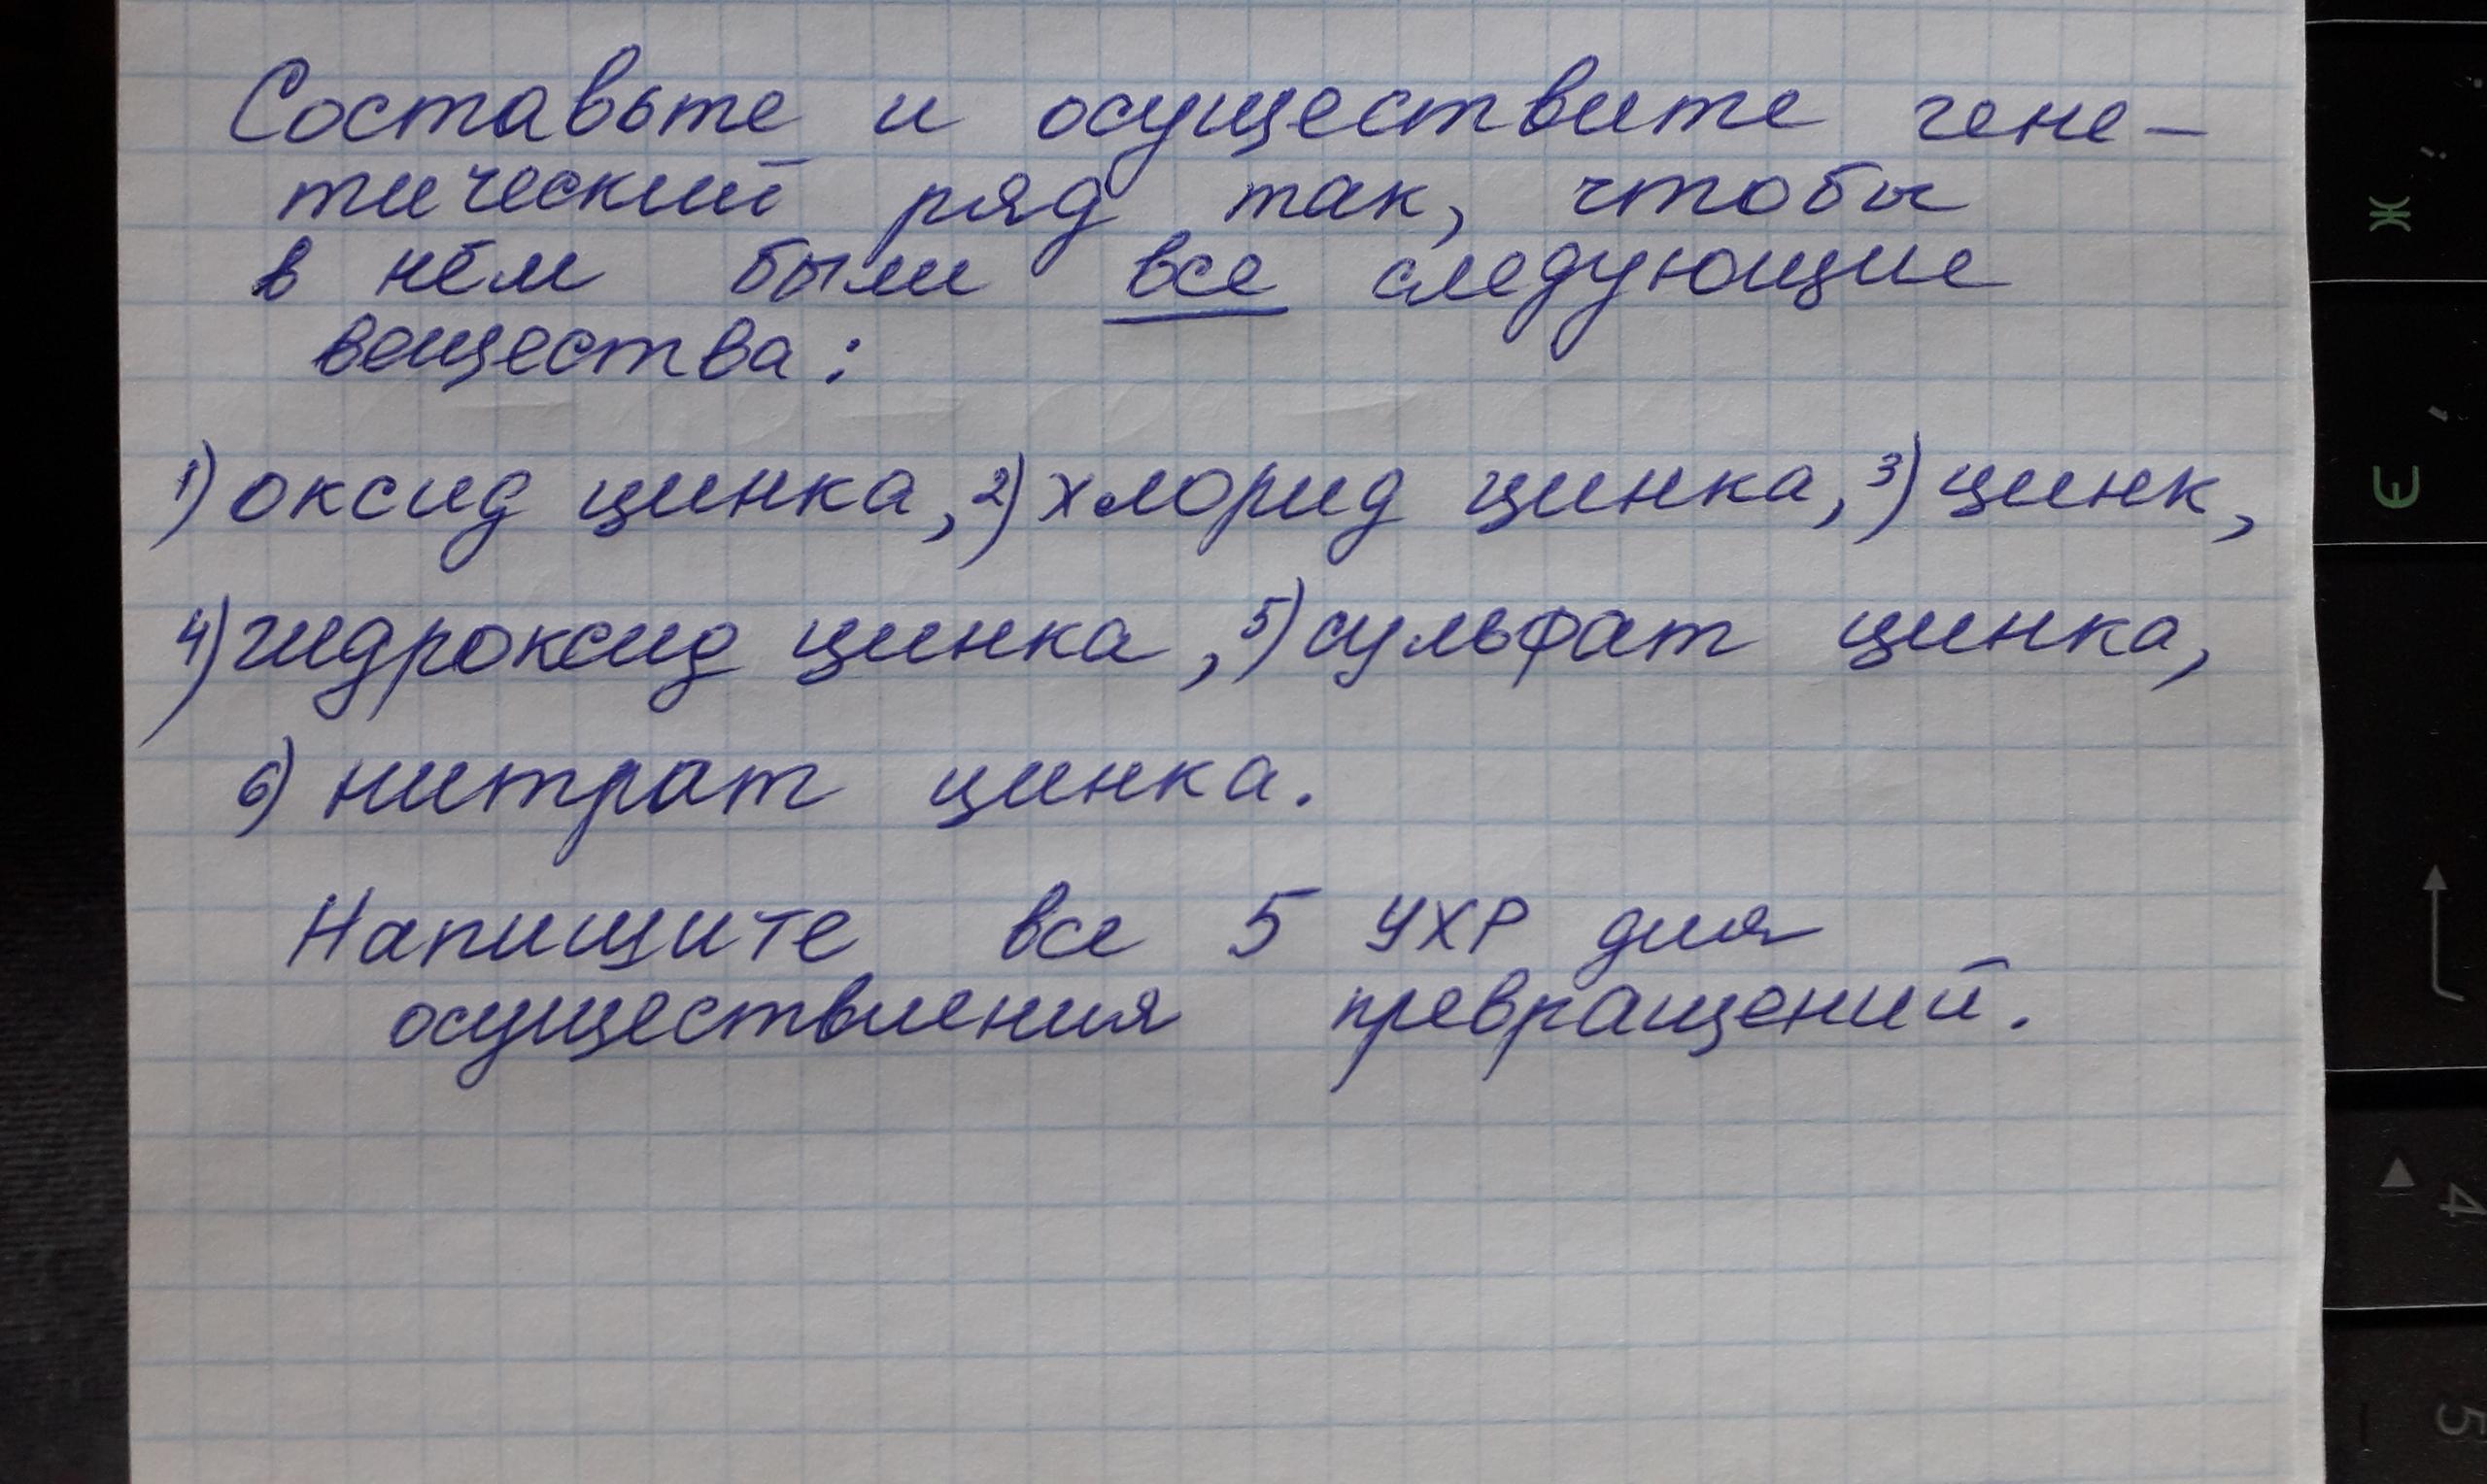 Составьте и осуществите гене-
тический ряд так, чтобы
в нём были все следующие
вещества:
1) оксид цинка, 2) хлорид цинка, 3) цинк,
4) гидроксид цинка, 5) сульфат цинка,
6) нитрат цинка.
Напишите все 5 УХР для
осуществления превращений.
Ж
Э
4
5